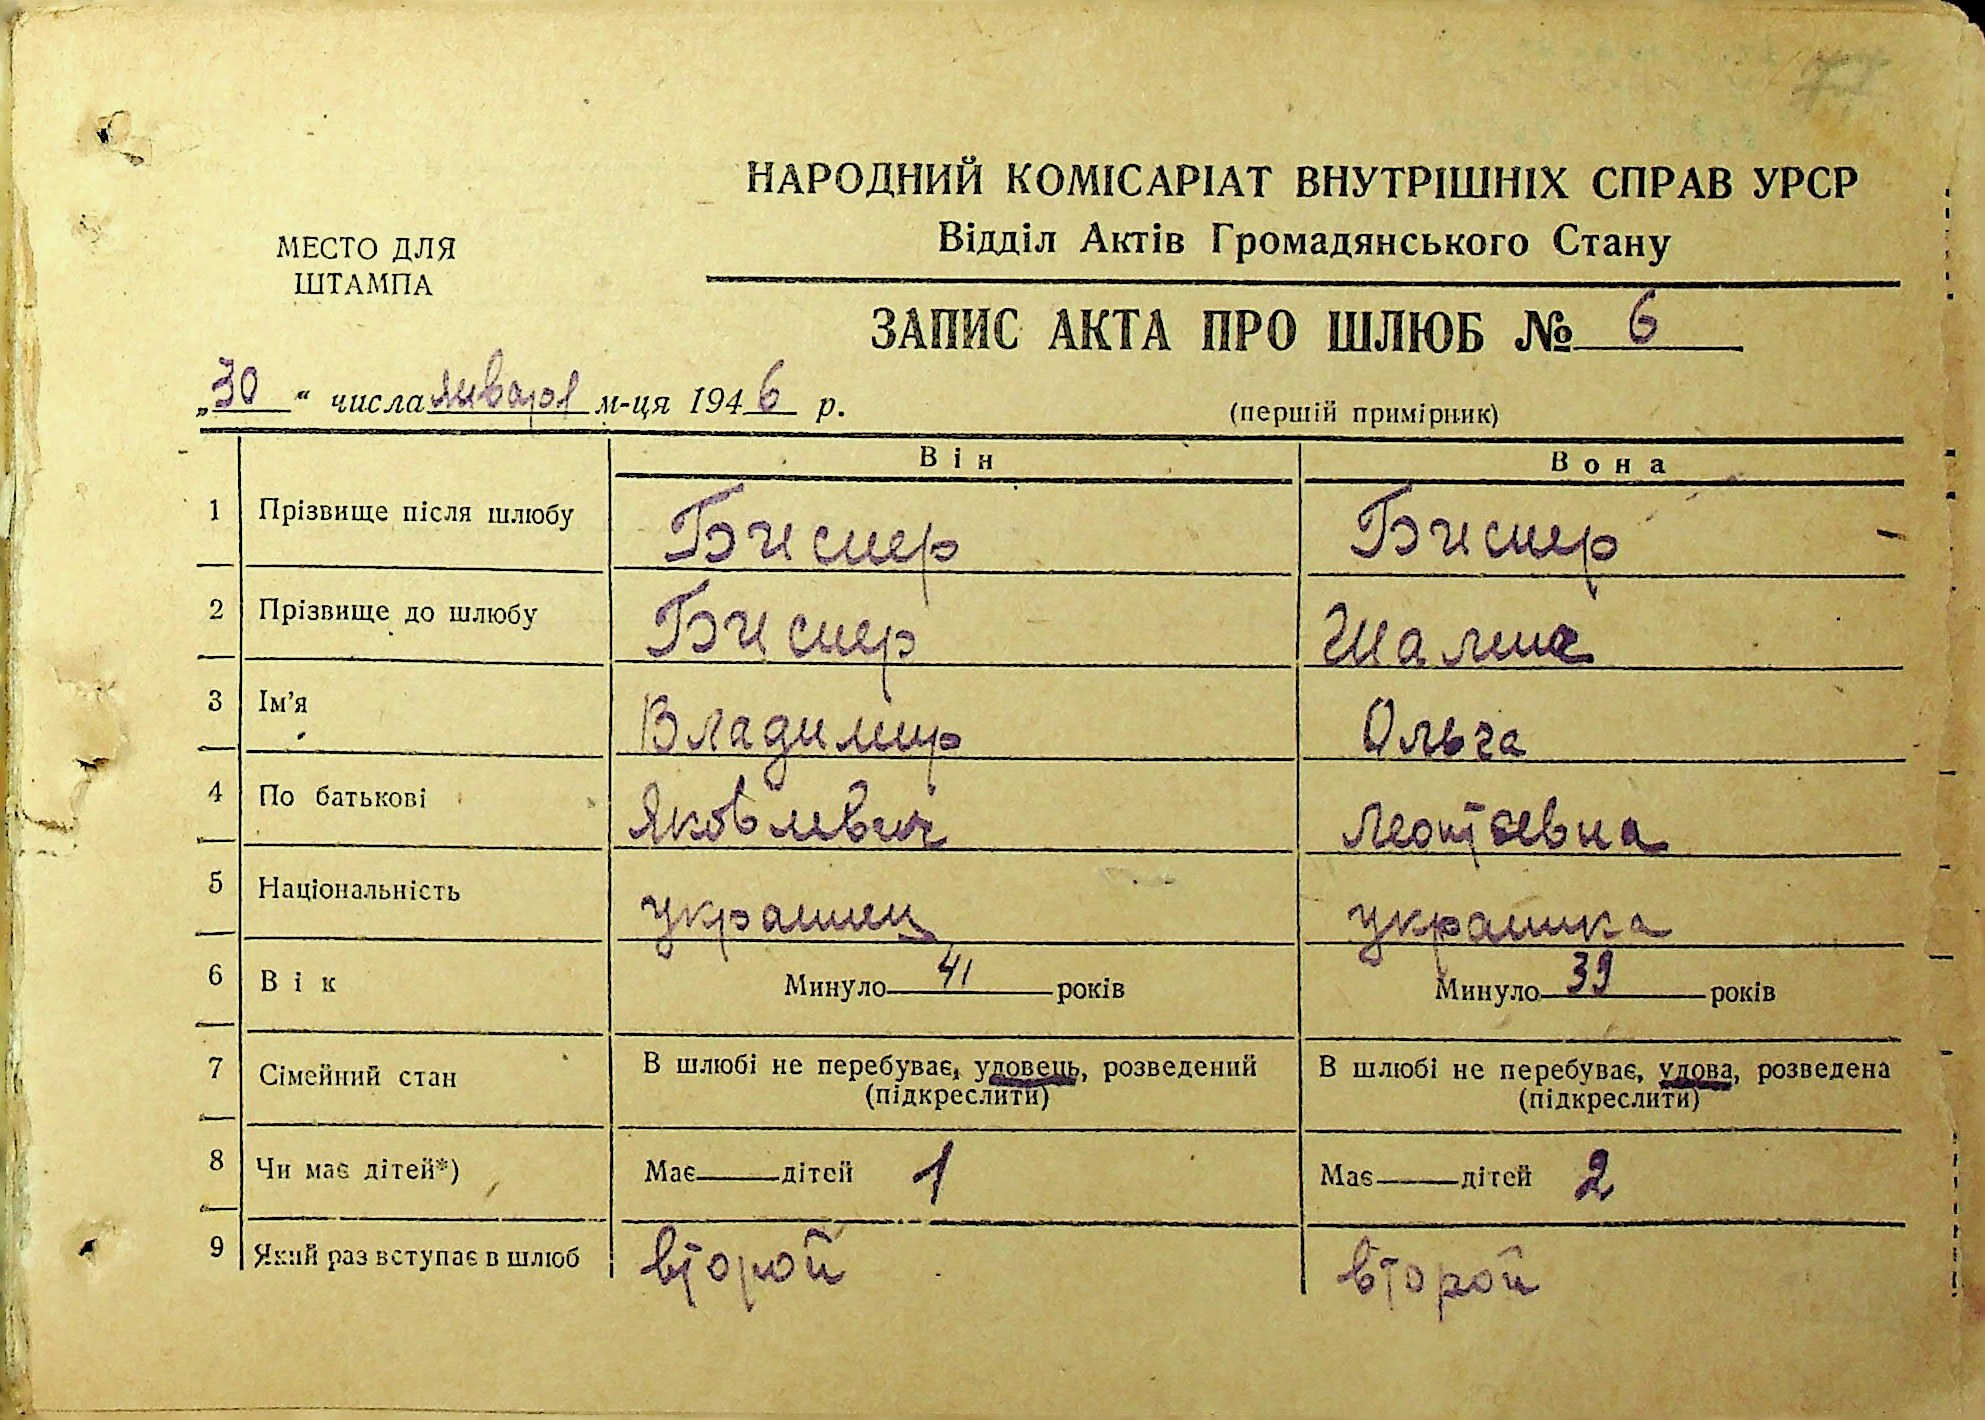 НАРОДНИЙ КОМІСАРІАТ ВНУТРІШНІХ СПРАВ УРСР
Відділ Актів Громадянського Стану
МЕСТО ДЛЯ
ШТАМПА
ЗАПИС АКТА ПРО ШЛЮБ № 6
„30“ числа января м-ця 1946 р.
(першій примірник)
Він Вона
1 Прізвище після шлюбу Бисмер Бисмер
2 Прізвище до шлюбу Бисмер
3 Ім'я Владимир Ольга
4 По батькові Яковлевич Леонтьевна
5 Національність украинец украинка
6 Вік Минуло 41 років Минуло 39 років
7 Сімейний стан В шлюбі не перебуває, удовець, розведений В шлюбі не перебуває, удова, розведена
(підкреслити) (підкреслити)
8 Чи має дітей*) Має дітей 1 Має дітей 2
9 Який раз вступає в шлюб второй второй